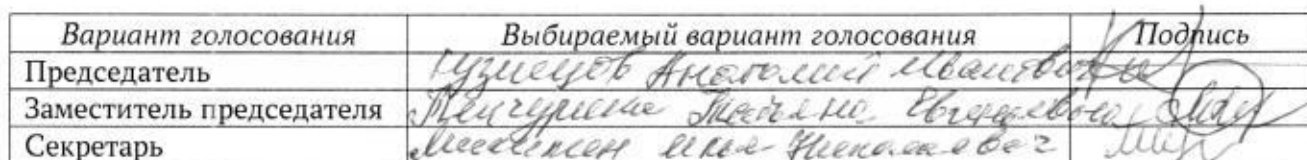 Вариант голосования Выбираемый вариант голосования Подпись
Председатель Кузнецов Анатолий Иванович
Заместитель председателя Татьяна Евгеньевна
Секретарь Николаевич